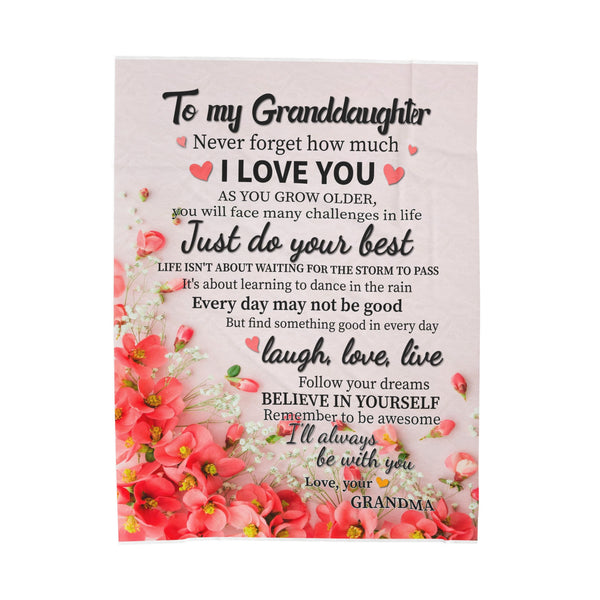 To my Granddaughter
Never forget how much
I LOVE YOU
AS YOU GROW OLDER,
you will face many challenges in life
Just do your best
LIFE ISN'T ABOUT WAITING FOR THE STORM TO PASS
It's about learning to dance in the rain
Every day may not be good
But find something good in every day
laugh, love, live
Follow your dreams
BELIEVE IN YOURSELF
Remember to be awesome
I'll always
be with you
Love, your
GRANDMA